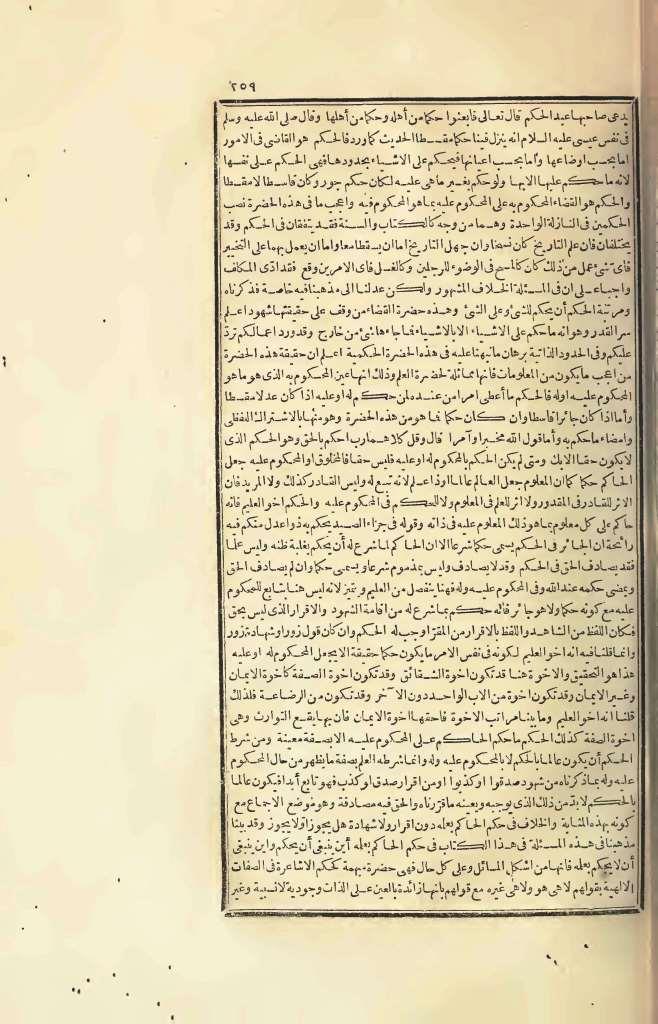 ٢٥٩
يدعى صاحبها عبد الحكم قال تعالى فابعثوا حكما من أهله وحكما من أهلها وقال صلى الله عليه وسلم
فى نفس عيسى عليه السلام انه ينزل فينا حكما مقسطا الحديث كما ورد فالحكم هو القاضى فى الامور
اما بحسب اوضاعها واما بحسب اعيانها فيحكم على الاشياء بحدودها فهى الحكم على نفسها
لانه ما حكم عليها الا بها ولو حكم بغير ما هى عليه لكان حكم جور وكان قاسطا لا مقسطا
والحكم هو القضاء المحكوم به على المحكوم عليه بما هو المحكوم فيه واعجب ما فى هذه الحضرة نصب
الحكمين فى النازلة الواحدة وهما من وجه كالكتاب والسنة فقد يتفقان فى الحكم وقد
يختلفان فان علم التاريخ كان نسخا وان جهل التاريخ اما ان يسقطا معا واما ان يعمل بهما على التخيير
فاى شئ عمل من ذلك كان كالمسح فى الوضوء للرجلين وكالغسل فاى الامرين وقع فقد ادّى المكلف
واجبا على ان فى المسئلة الخلاف المشهور ولكن عدلنا الى مذهبنا فيه خاصة فذكرناه
ومرتبة الحكم أن يحكم للشئ وعلى الشئ وهذه حضرة القضاء من وقف على حقيقتها شهودا علم
سر القدر وهو انه ما حكم على الاشياء الا بالاشياء فما جاءها شئ من خارج وقد ورد اعمالكم تردّ
عليكم وفى الحدود الذاتية برهان ما نبهنا عليه فى هذه الحضرة الحكمية اعلم ان حقيقة هذه الحضرة
من اعجب ما يكون من المعلومات فانها مماثلة لحضرة العلم وذلك انها عين المحكوم به الذى هو ما هو
المحكوم عليه اوله فالحكم ما أعطى امرا من عنده لمن حكم له او عليه اذا كان عدلا مقسطا
وأما اذا كان جائرا قاسطا وان كان حكما فما هو من هذه الحضرة وهو منها بالاشتراك اللفظى
وامضاء ما حكم به وأما قول الله مخبرا وآمرا قال وقل كلاهما رب احكم بالحق وهو الحكم الذى
لا يكون حقا الا بك ومتى لم يكن الحكم بالمحكوم له او عليه فليس حقا فالمخلوق او المحكوم عليه جعل
الحاكم حكما كما ان المعلوم جعل العالم عالما او ذا علم لانه تبع له وليس القادر كذلك ولا المريد فان
الاثر للقادر فى المقدور ولا اثر للعلم فى المعلوم ولا للحكم فى المحكوم عليه والحكم اخو العليم فانه
حاكم على كل معلوم بما هو ذلك المعلوم عليه فى ذاته وقوله فى جزاء الصيد يحكم به ذوا عدل منكم فيه
رائحة ان الجائر فى الحكم يسمى حكما شرعا الا ان الحاكم لما شرع له أن يحكم بغلبة ظنه وليس علما
فقد يصادف الحق فى الحكم وقد لا يصادف وليس بمذموم شرعا ويسمى حكما وان لم يصادف الحق
ويمضى حكمه عند الله وفى المحكوم عليه وله فهنا ينفصل من العليم ويتميز لانه ليس هنا بتابع للمحكوم
عليه مع كونه حكما ولا هو جائر فانه حكم بما شرع له من اقامة الشهود والاقرار الذى ليس بحق
فكان اللفظ من الشاهد واللفظ بالاقرار من المقرّ اوجب له الحكم وان كان قول زور او شهادة زور
وانما قلنا فيه انه اخو العليم لكونه فى نفس الامر ما يكون حكما حقيقة الا بجعل المحكوم له او عليه
هذا هو التحقيق والاخوة هنا قد تكون اخوة الشقائق وقد تكون اخوة الصفة كأخوة الايمان
وغير الايمان وقد تكون اخوة من الاب الواحد دون الآخر وقد تكون من الرضاعة فلذلك
قلنا انه اخو العليم وما بينا مراتب الاخوة فاحقها اخوة الايمان فان بها يقع التوارث وهى
اخوة الصفة كذلك الحكم ما حكم الحاكم على المحكوم عليه الا بصفة معينة ومن شرط
الحكم أن يكون عالما بالحكم لا بالمحكوم عليه وله وانما شرطه العلم بصفة ما يظهر من حال المحكوم
عليه وله بما ذكرناه من شهود صدقوا او كذبوا او من اقرار صدق او كذب فهو تابع أبدا فيكون عالما
بالحكم لا بدّ من ذلك الذى يوجبه ويعينه ما قررناه والحق فيه مصادفة وهو موضع الاجماع مع
كونه بهذه المثابة والخلاف فى حكم الحاكم بعلمه دون اقرار ولا شهادة هل يجوز او لا يجوز وقد بينا
مذهبنا فى هذه المسئلة فى هذا الكتاب فى حكم الحاكم بعلمه أين ينبغى أن يحكم واين ينبغى
أن لا يحكم بعلمه فانها من اشكل المسائل وعلى كل حال فهى حضرة مبهمة كحكم الاشاعرة فى الصفات
الالهية بقولهم لا هى هو ولا هى غيره مع قولهم بانها زائدة بالعين على الذات وجودية لا نسبية وغير